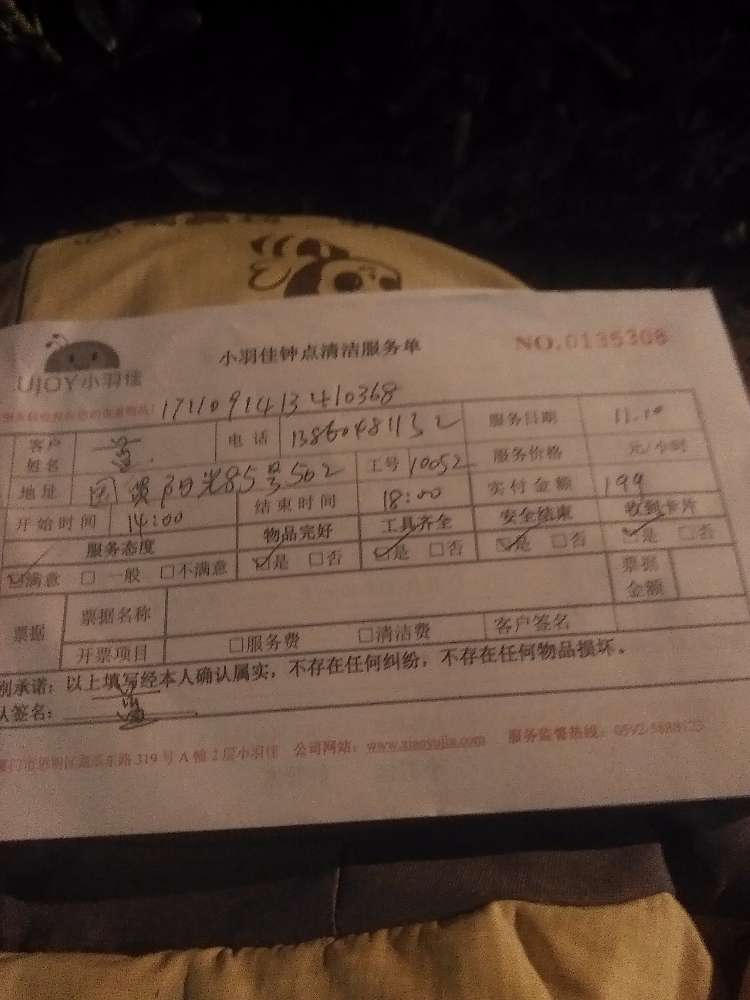 UJOY小羽佳
小羽佳钟点清洁服务单
NO.0135308
1711091413410368
客户姓名
电话 13860481132
服务日期 11.10
地址 阳光85号502
工号 10052
服务价格 元/小时
开始时间 14:00
结束时间 18:00
实付金额 199
服务态度 物品完好 工具齐全 安全结束 收到卡片
☑满意 □一般 □不满意 ☑是 □否 ☑是 □否 ☑是 □否 ☑是 □否
票据 票据名称 票据金额
开票项目 □服务费 □清洁费 客户签名
别承诺：以上填写经本人确认属实，不存在任何纠纷，不存在任何物品损坏。
认签名：
东路319号A幢2层小羽佳 公司网站：www.xiaoyujia.com 服务监督热线：